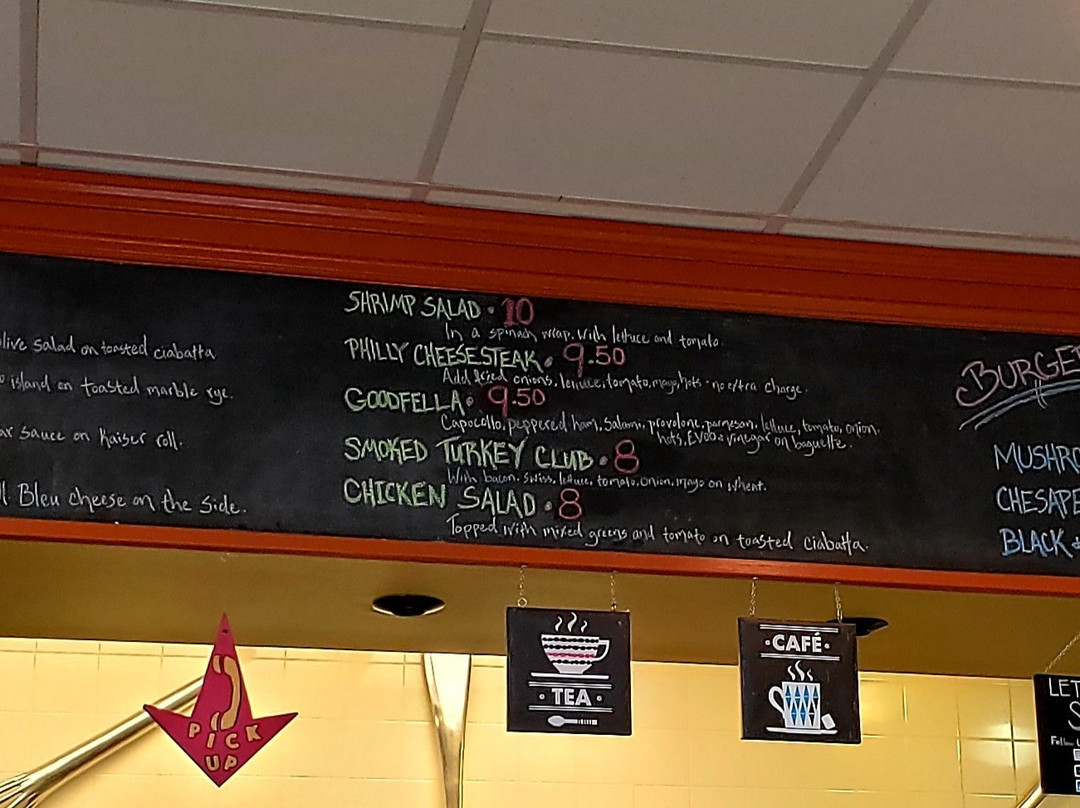 live Salad on toasted ciabatta
island on toasted marble rye.
ar Sauce on Kaiser roll.
Bleu cheese on the Side.
SHRIMP SALAD · 10
In a spinach wrap, with lettuce and tomato.
PHILLY CHEESESTEAK · 9.50
Add fried onions, lettuce, tomato, mayo, hots - no extra charge.
GOODFELLA · 9.50
Capocollo, peppered ham, Salami, provolone, parmesan, lettuce, tomato, onion,
hots, EVOO & vinegar on baguette.
SMOKED TURKEY CLUB · 8
With bacon, Swiss, lettuce, tomato, onion, mayo on wheat.
CHICKEN SALAD · 8
Topped with mixed greens and tomato on toasted ciabatta.
BURGE
MUSHRO
CHESAPE
BLACK
PICK
UP
· TEA ·
· CAFÉ ·
LET
S
Follow